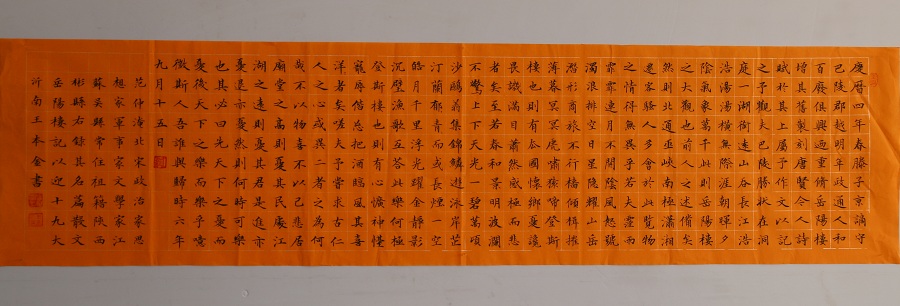 慶曆四年春滕子京謫守
巴陵郡越明年政通人和
百廢具興迺重脩岳陽樓
增其舊制刻唐賢今人詩
賦於其上屬予作文以記
之予觀夫巴陵勝狀在洞
庭一湖銜遠山吞長江浩
浩湯湯橫無際涯朝暉夕
陰氣象萬千此則岳陽樓
之大觀也前人之述備矣
然則北通巫峽南極瀟湘
遷客騷人多會於此覽物
之情得無異乎若夫霪雨
霏霏連月不開陰風怒號
濁浪排空日星隱耀山岳
潛形商旅不行檣傾楫摧
薄暮冥冥虎嘯猿啼登斯
樓也則有去國懷鄉憂讒
畏譏滿目蕭然感極而悲
者矣至若春和景明波瀾
不驚上下天光一碧萬頃
沙鷗翔集錦鱗遊泳岸芷
汀蘭郁郁青青而或長煙一空
皓月千里浮光躍金靜影
沉璧漁歌互答此樂何極
登斯樓也則有心曠神怡
寵辱偕忘把酒臨風其喜
洋洋者矣嗟夫予嘗求古仁
人之心或異二者之為何
哉不以物喜不以己悲居
廟堂之高則憂其民處江
湖之遠則憂其君是進亦
憂退亦憂然則何時可樂
也其必曰先天下之憂而
憂後天下之樂而樂乎噫
微斯人吾誰與歸時六年
九月十五日
范仲淹北宋政治家思
想家軍事家文學家江
蘇吳縣常住祖籍陝西
彬縣右錄其名篇散文
岳陽樓記以迎十九大
沂南王本金書